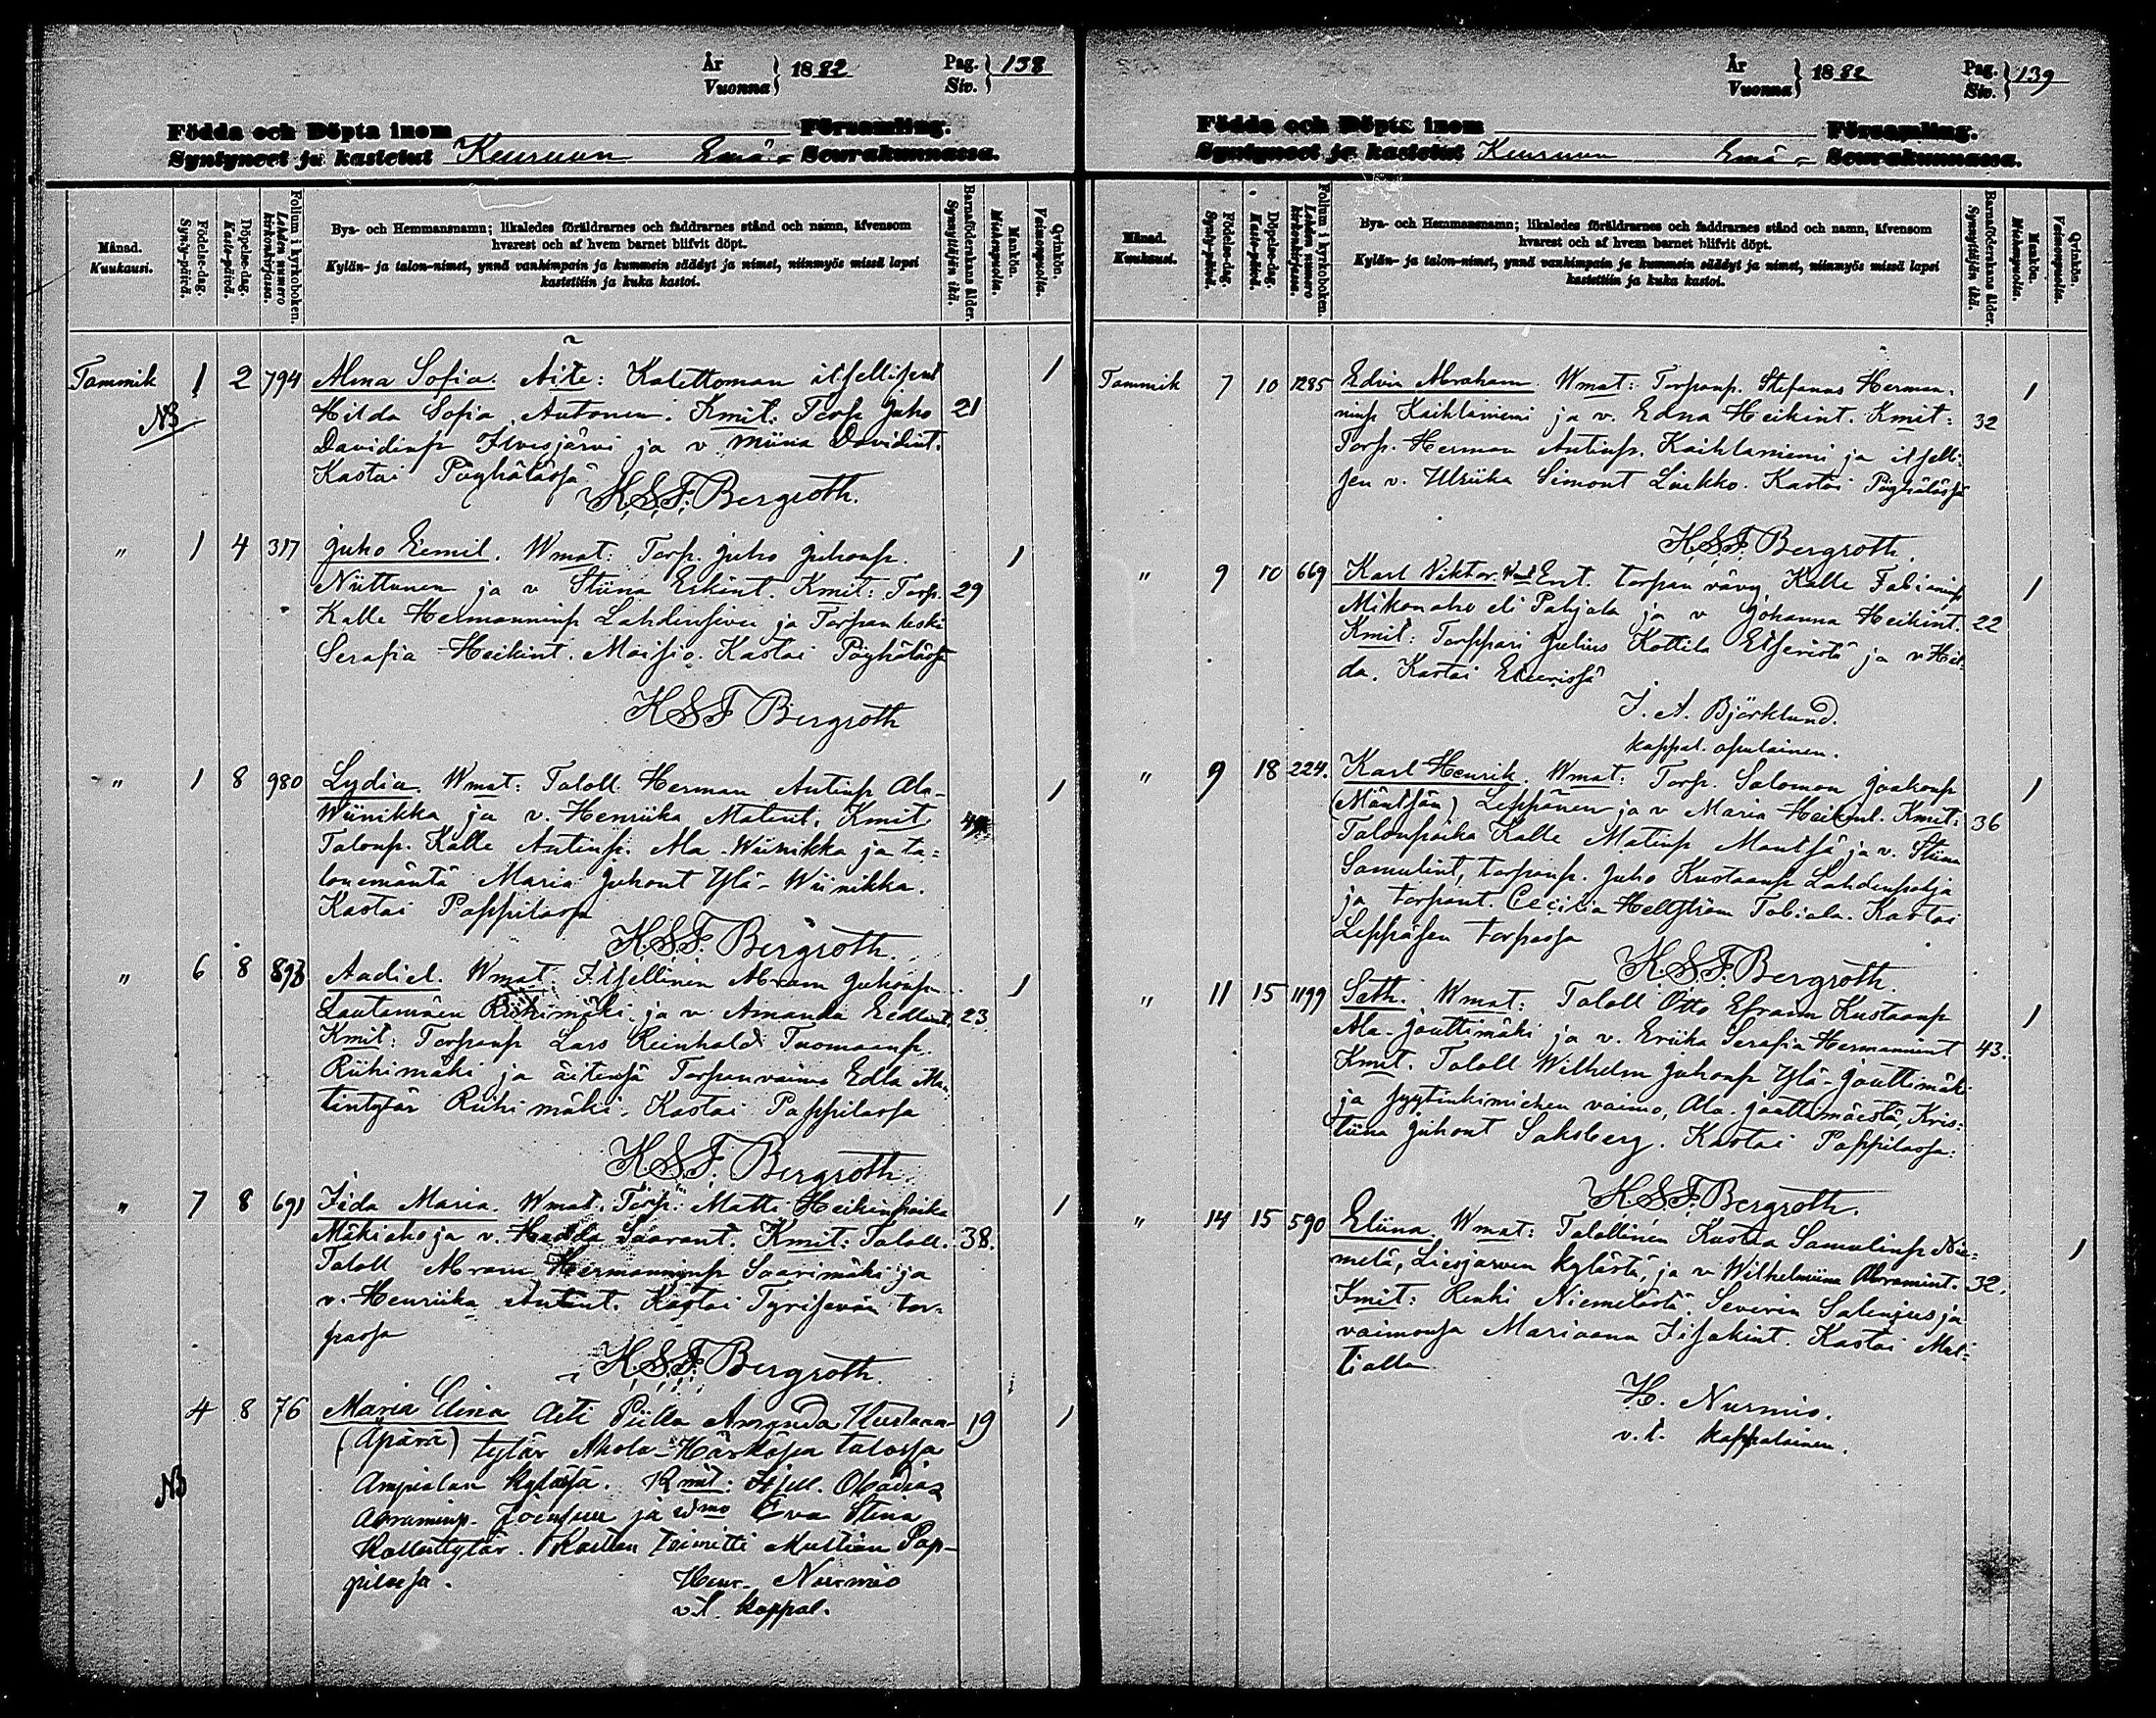 År
Vuonna } 1882 Pag.
Siv. } 138
Födda och Döpta inom Församling.
Syntyneet ja kastetut Keuruun Emä- Seurakunnassa.
Månad.
Kuukausi.
Födelse-dag.
Synty-päivä.
Döpelse-dag.
Kaste-päivä.
Folium i kyrkoboken.
Lehden numero kirkonkirjassa.
Bya- och Hemmansnamn; likaledes föräldrarnes och faddrarnes stånd och namn, äfvensom
hvarest och af hvem barnet blifvit döpt.
Kylän- ja talon-nimet, ynnä vanhimpain ja kummein säädyt ja nimet, niinmyös missä lapsi
kastettiin ja kuka kastoi.
Barnaföderskans ålder.
Synnyttäjän ikä.
Mankön.
Miehenpuolia.
Qvinkön.
Vaimonpuolia.
Tammik 1 2 794 Alma Sofia. Äite: Kalettoman itsellisen 1
NB Hilda Sofia Antonen. Kmit. Torp Juho 21
Davidinp Ilvesjärvi ja v Miina Davidint.
Kastoi Pöyhölässä
K.S.F. Bergroth.
" 1 4 317 Juho Eemil. Wmat: Torp. Juho Juhonp. 1
Niittunen ja v Stiina Erkint. Kmit: Torp. 29
Kalle Hermanninp Lahdensivu ja Torpan leski
Serafia Heikint. Maisio. Kastoi Pöyhölässä
K.S.F. Bergroth
" 1 8 980 Lydia. Wmat: Taloll. Herman Antinp Ala- 1
Wiinikka ja v. Henriika Matint. Kmit.
Talonp. Kalle Antinp. Ala-Wiinikka ja ta-
lonemäntä Maria Juhont Ylä-Wiinikka.
Kastoi Pappilassa
K.S.F. Bergroth.
" 6 8 893 Aadiel. Wmat. Itsellinen Abram Juhonp 1
Lautamäen Riihimäki ja v. Amanda Eedlint. 23.
Kmit: Torpanp Lars Reinhold Tuomaanp.
Riihimäki ja äitensä Torpanvaimo Edla Ma-
tintytär Riihimäki. Kastoi Pappilassa
K.S.F. Bergroth.
" 7 8 691 Iida Maria. Wmat. Torp. Matti Heikinpoika 1
Mäkiaho ja v. Hedda Saarant. Kmit: Taloll. 38.
Taloll Abram Hermanninp Saarimäki ja
v. Henriika Antint. Kastoi Tyrisevän tor-
passa
K.S.F. Bergroth.
4 8 76 Maria Elina Äiti Piika Amanda Kustaan- 19 1
(Äpärä) tytär Ahola-Härkösen talossa
NB Ampialan kylässä. Kmit: Itsell. Obadias
Abraminp. Joensuu ja vmo Eva Stina
Kallentytär. Kasteen toimitti Multian Pap-
pilassa. Henr. Nurmio
v.t. kappal.
År
Vuonna } 1882 Pag.
Siv. } 139
Födda och Döpta inom Församling.
Syntyneet ja kastetut Keuruun Emä- Seurakunnassa.
Månad.
Kuukausi.
Födelse-dag.
Synty-päivä.
Döpelse-dag.
Kaste-päivä.
Folium i kyrkoboken.
Lehden numero kirkonkirjassa.
Bya- och Hemmansnamn; likaledes föräldrarnes och faddrarnes stånd och namn, äfvensom
hvarest och af hvem barnet blifvit döpt.
Kylän- ja talon-nimet, ynnä vanhimpain ja kummein säädyt ja nimet, niinmyös missä lapsi
kastettiin ja kuka kastoi.
Barnaföderskans ålder.
Synnyttäjän ikä.
Mankön.
Miehenpuolia.
Qvinkön.
Vaimonpuolia.
Tammik 7 10 1285 Edvin Abraham. Wmat: Torpanp. Stefanus Herman- 1
ninp Kaihlaniemi ja v. Edna Heikint. Kmit: 32
Torp. Herman Antinp. Kaihlaniemi ja itselli-
sen v. Ulriika Simont Liukko. Kastoi Pöyhölässä
K.S.F. Bergroth.
" 9 10 669 Karl Viktor. Wmat Ent. torpan vävy Kalle Fabianinp 1
Mikonaho eli Pohjola ja v Johanna Heikint. 22
Kmit: Torppari Julius Kottila Etseristä ja v. Hil-
da. Kastoi Etseerissä
J. A. Björklund.
kappal. apulainen.
" 9 18 224. Karl Henrik. Wmat: Torp. Salomon Jaakonp 1
(Mäntsän) Leppänen ja v Maria Heikint. Kmit: 36
Talonpoika Kalle Matinp Mäntsä ja v. Stiina
Samulint, torpanp. Juho Kustaanp Lahdenpohja
ja torpant. Cecilia Hellström Tobiala. Kastoi
Leppäsen torpassa
K.S.F. Bergroth.
" 11 15 1199 Seth. Wmat: Taloll Otto Efraim Kustaanp 1
Ala-Jouttimäki ja v. Eriika Serafia Hermannint 43.
Kmit. Taloll Wilhelm Juhonp Ylä-Jouttimäki
ja syytinkimiehen vaimo, Ala-Jouttimäestä, Kris-
tiina Juhont Saksberg. Kastoi Pappilassa.
K.S.F. Bergroth.
" 14 15 590 Eliina. Wmat: Talollinen Kustaa Samulinp Nie- 1
melä, Liesjärven kylästä, ja v. Wilhelmiina Abramint. 32.
Kmit: Renki Niemelästä Severin Salenius ja
vaimonsa Mariaana Iisakint. Kastoi Mul-
tialla
H. Nurmio.
v.t. kappalainen.